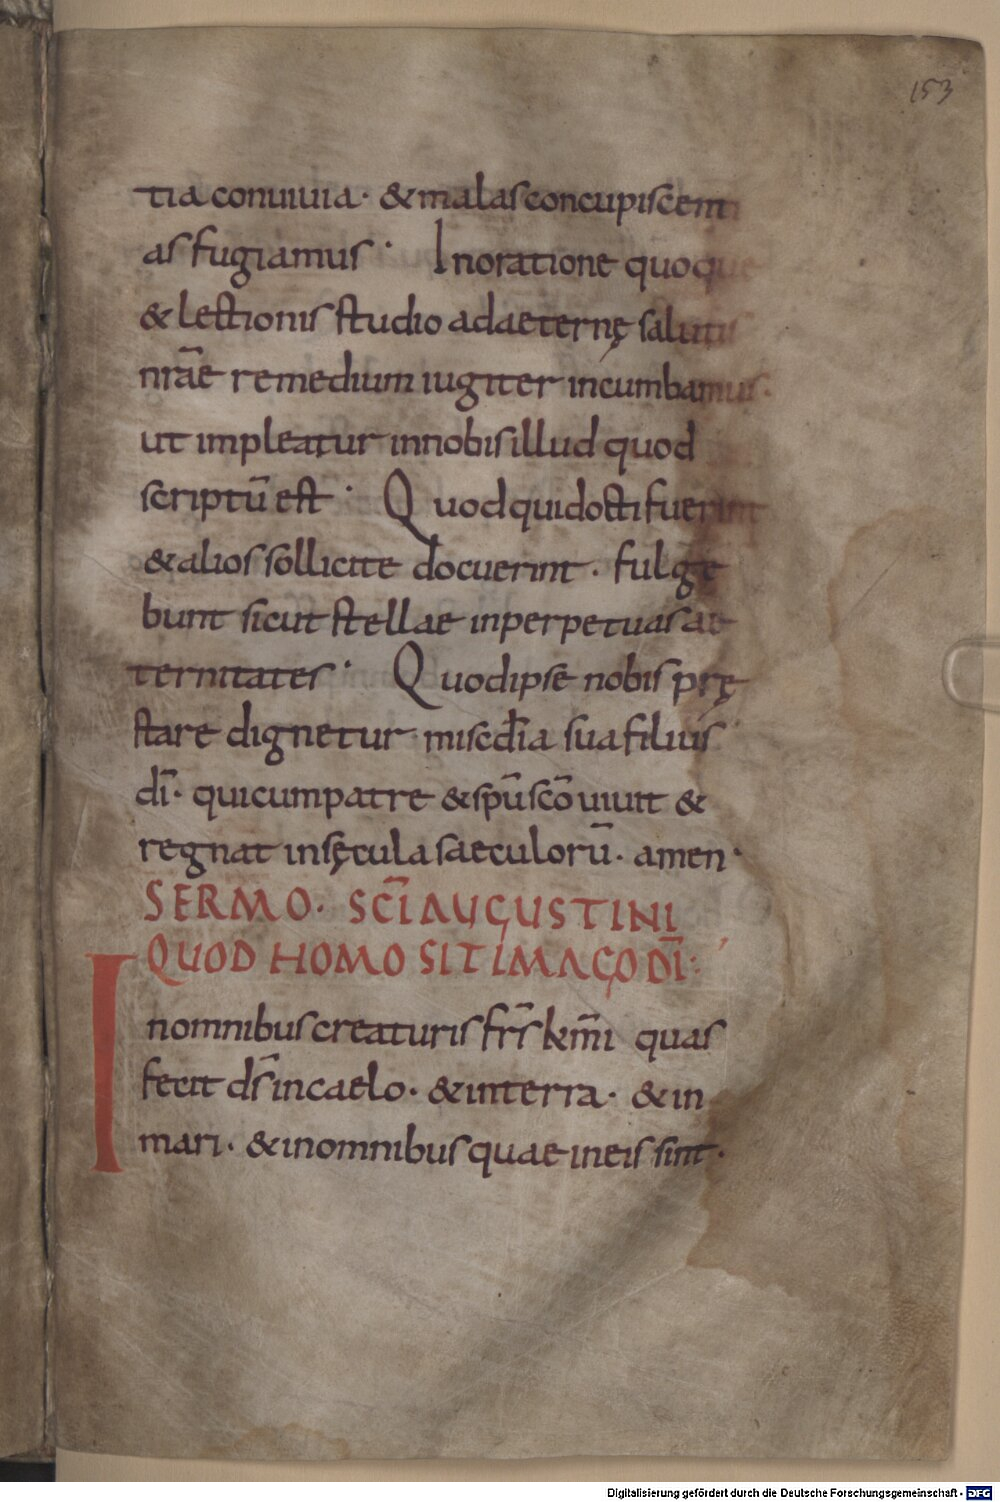 153
tia conuiuia · & malas concupiscenti
as fugiamus · In oratione quoque
& lectionis studio ad aeternę salutis
nr̄ae remedium iugiter incumbamus ·
ut impleatur in nobis illud quod
scriptū est · Quod qui docti fuerint
& alios sollicite docuerint · fulge
bunt sicut stellae in perpetuas ae
ternitates · Quod ipse nobis prę
stare dignetur misc̄dia sua filius
dī · qui cum patre & spū scō uiuit &
regnat in sęcula saeculorū · amen ·
SERMO · SCĪ AUGUSTINI
QUOD HOMO SIT IMAGO DĪ ·
In omnibus creaturis frs̄ km̄i quas
fecit ds̄ in caelo · & in terra · & in
mari · & in omnibus quae in eis sint ·
Digitalisierung gefördert durch die Deutsche Forschungsgemeinschaft - DFG